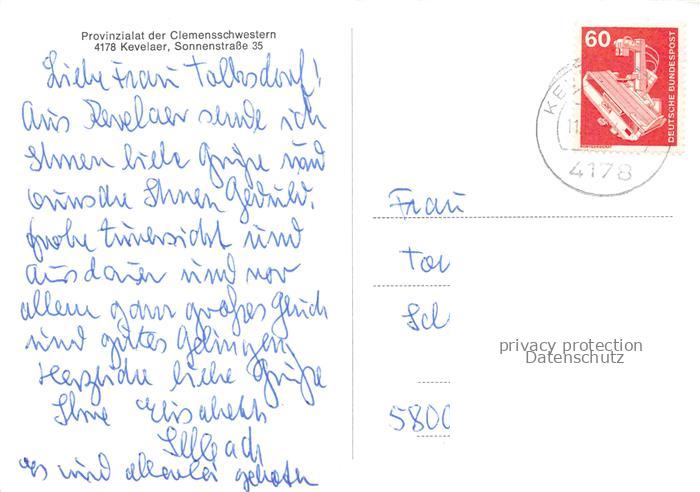 Provinzialat der Clemensschwestern
4178 Kevelaer, Sonnenstraße 35
Liebe Frau Tolksdorf!
Aus Kevelaer sende ich
Ihnen liebe Grüße und
wünsche Ihnen Geduld,
frohe Zuversicht und
Ausdauer und vor
allem ganz großes Glück
und gutes Gelingen
Herzliche liebe Grüße
Ihre Elisabeth
und allerlei
60
DEUTSCHE BUNDESPOST
KEV
4178
Frau
Tol
Sch
5800
privacy protection
Datenschutz